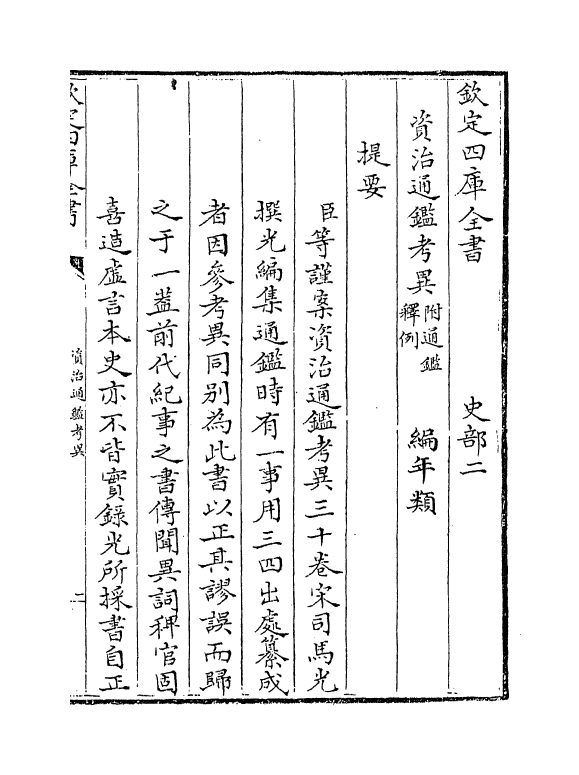 欽定四庫全書　　　史部二
資治通鑑考異附通鑑釋例　　編年類
提要
臣等謹案資治通鑑考異三十卷宋司馬光
撰光編集通鑑時有一事用三四出處纂成
者因參考異同别為此書以正其謬誤而歸
之于一葢前代紀事之書傳聞異詞稗官固
喜造虚言本史亦不皆實録光所採書自正
欽定四庫全書
資治通鑑考異